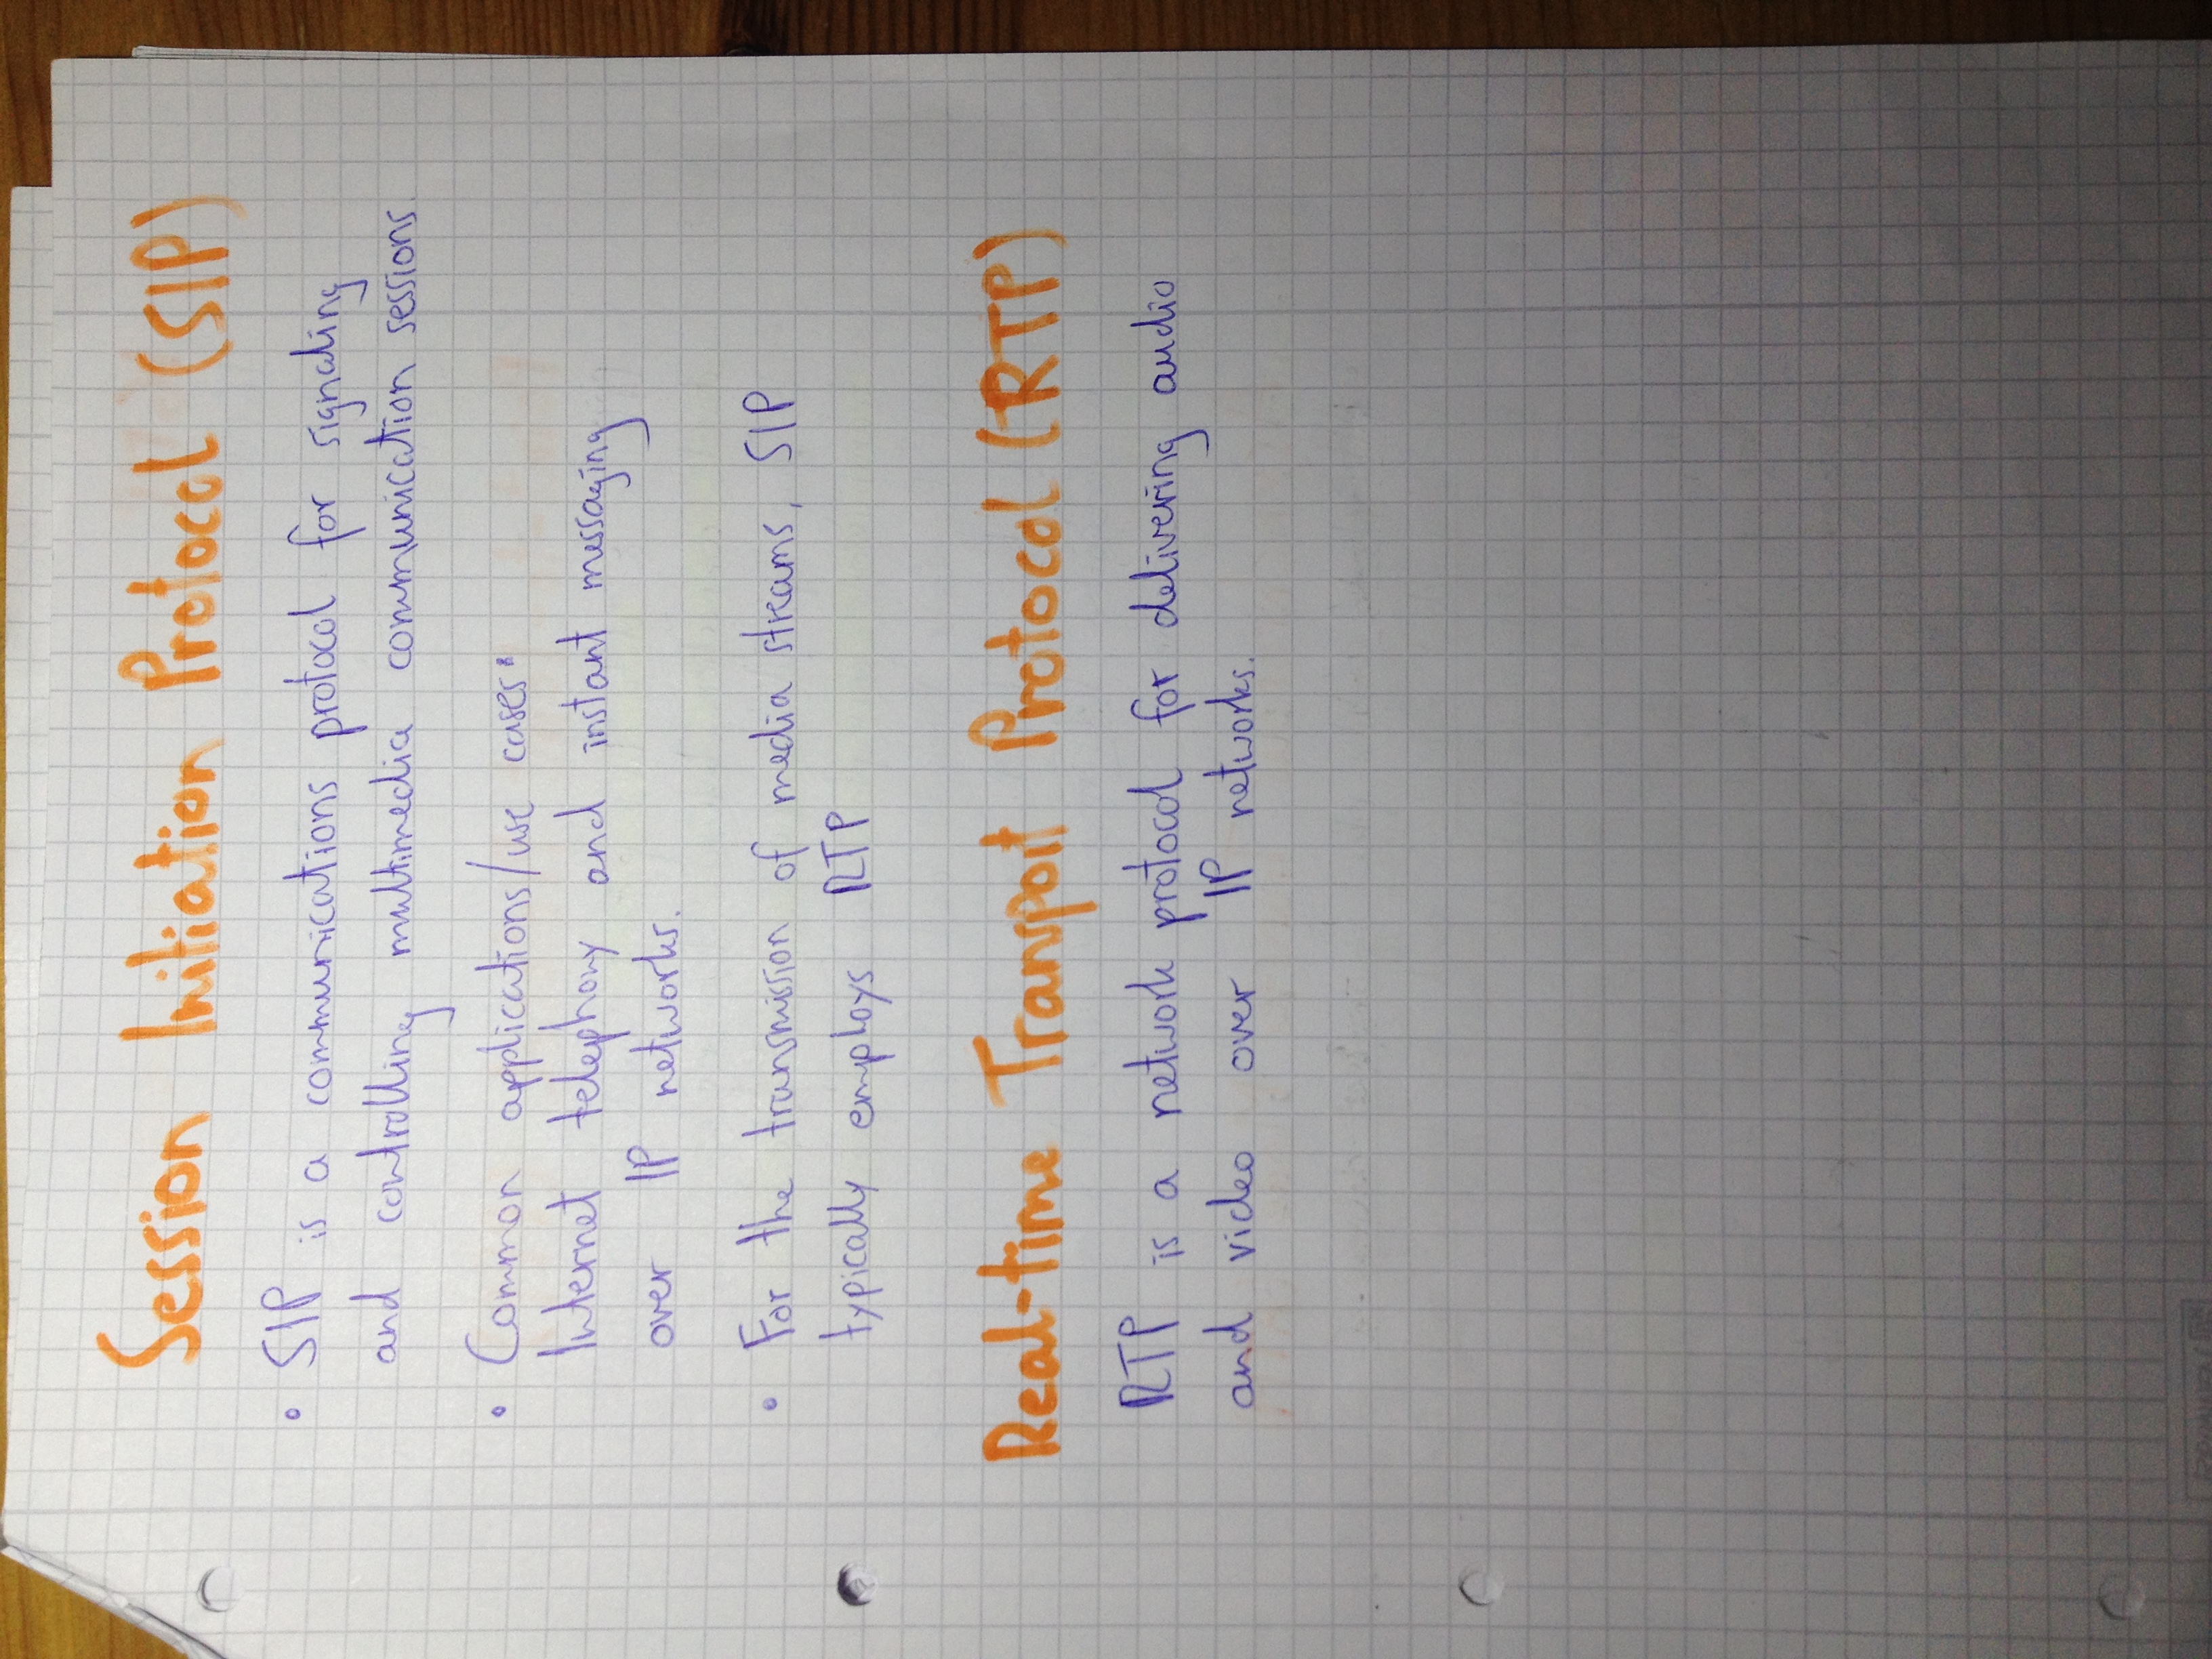 Session Initiation Protocol (SIP)
• SIP is a communications protocol for signaling
and controlling multimedia communication sessions.
• Common applications/use cases:
Internet telephony and instant messaging
over IP networks.
• For the transmission of media streams, SIP
typically employs RTP
Real-time Transport Protocol (RTP)
RTP is a network protocol for delivering audio
and video over IP networks.